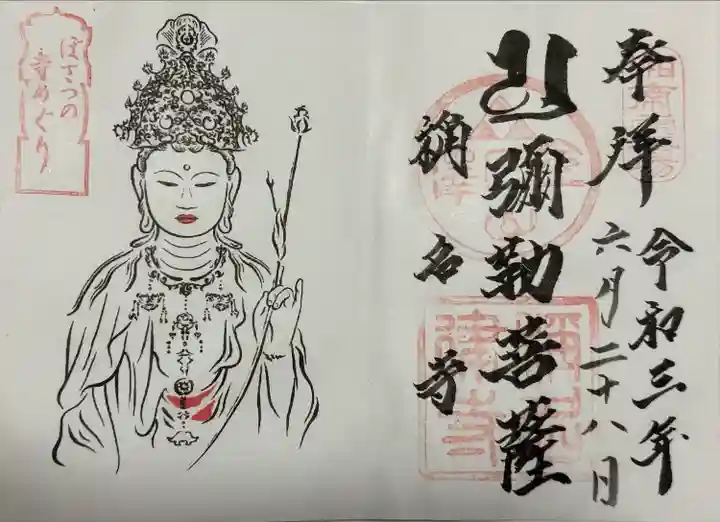 奉拝
令和三年
六月二十八日
彌勒菩薩
称名寺
ぼさつの
寺めぐり